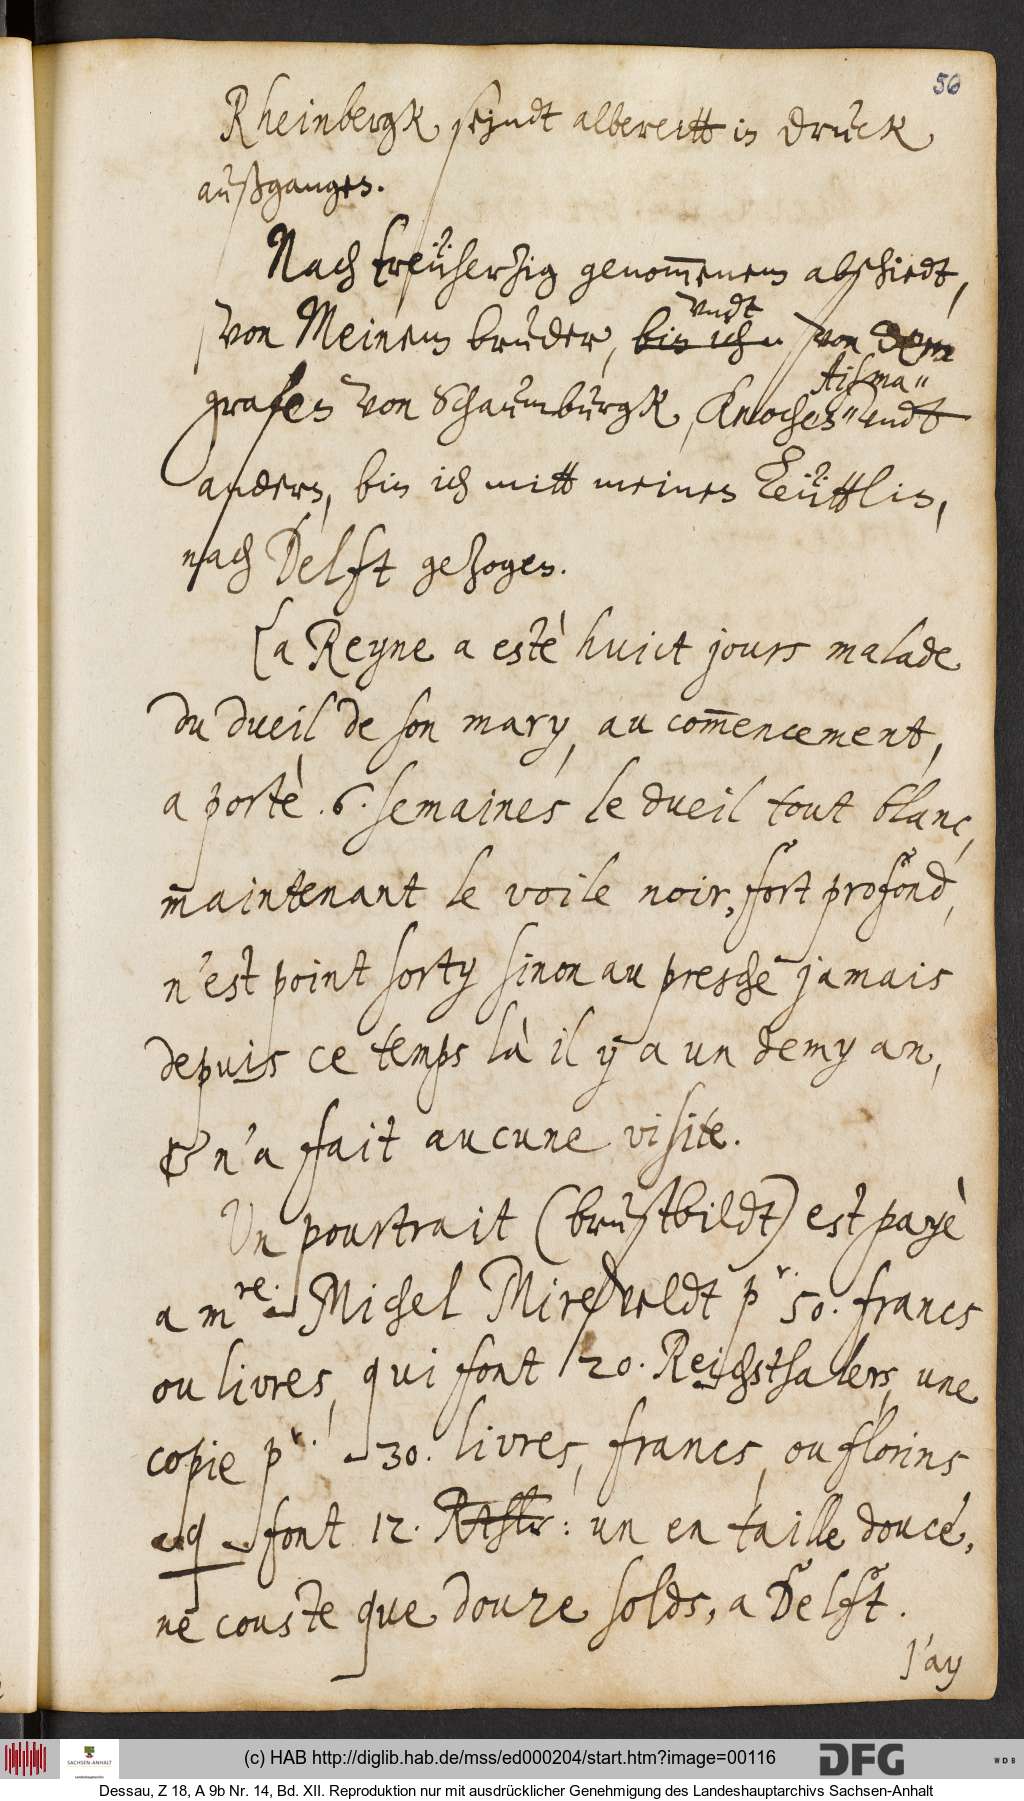 56
Rheinbergk seyndt albereitt in druck
außgangen.
Nach treüherzig genom̄enem abschiedt,
von Meinem bruder, bin ich undt von dem
grafen von Schaumburgk, Knochen
andern, bin ich mitt meinen Leüttlin,
nach Delft gezogen.
La Reyne a estè huict jours malade
du dueil de son mary, au com̄encement,
a portè .6. semaines le dueil tout blanc,
maintenant le voile noir, fort profond,
n'est point sorty sinon au presche jamais
depuis ce temps là il y a un demy an,
& n'a fait aucune visite.
Un pourtrait (brustbildt) est payè
a mre. Michel Mireveldt pr. 50. francs
ou livres, qui font 20. Reichsthalers, une
copie pr. 30. livres, francs, ou florins
q font 12. Rthlr: un en taille douce,
ne couste que douze solds, a Delft.
J'ay
(c) HAB http://diglib.hab.de/mss/ed000204/start.htm?image=00116
SACHSEN-ANHALT
DFG
WDB
Dessau, Z 18, A 9b Nr. 14, Bd. XII. Reproduktion nur mit ausdrücklicher Genehmigung des Landeshauptarchivs Sachsen-Anhalt